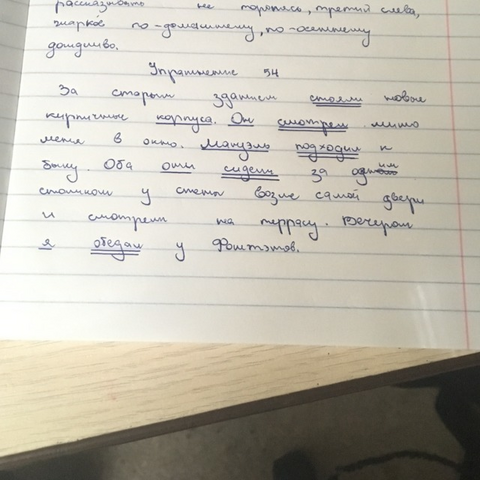 рассказывать не торопясь, третий слева,
жарков по-домашнему, по-осеннему
дождливо.
Упражнение 54
За старым зданием стояли новые
кирпичные корпуса. Он смотрел мимо
меня в окно. Мануэль подходил к
быку. Оба они сидели за одним
столиком у стены возле самой двери
и смотрели на террасу. Вечером
я обедал у Фоштэтов.